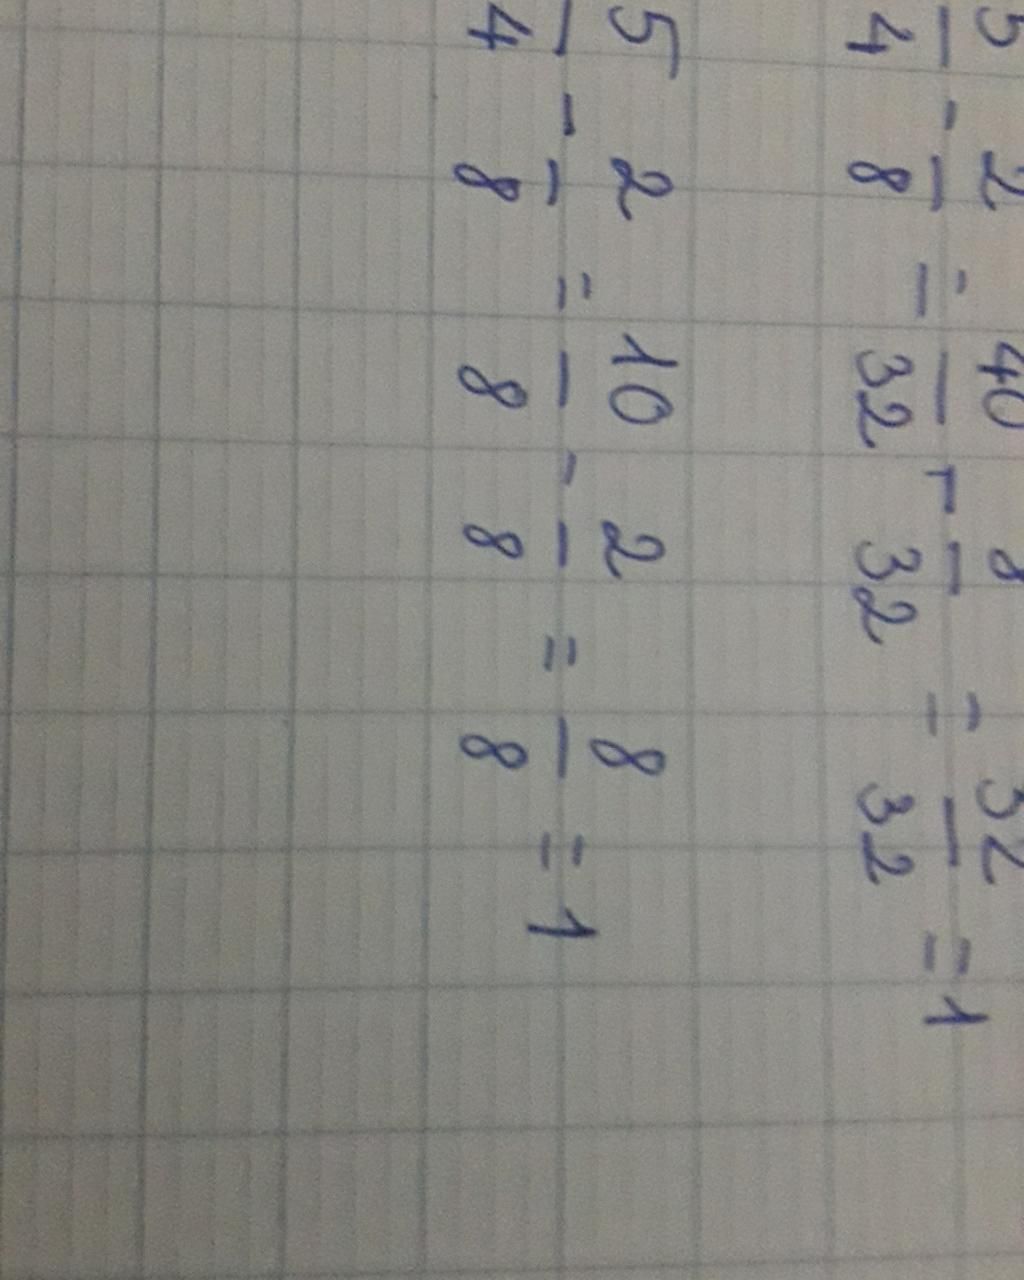 5/4 - 2/8 = 40/32 - 8/32 = 32/32 = 1
5/4 - 2/8 = 10/8 - 2/8 = 8/8 = 1